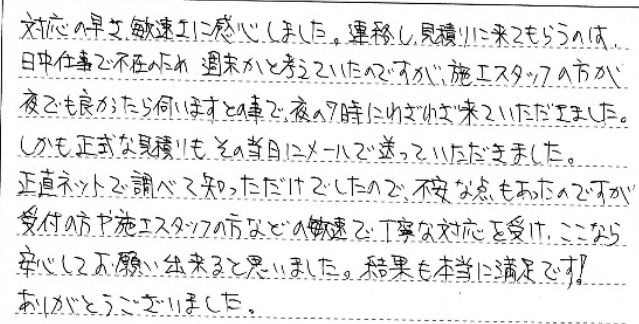 対応の早さ、敏速さに感心しました。連絡し、見積りに来てもらうのは、
日中仕事で不在のため 週末かと考えていたのですが、施工スタッフの方が
夜でも良かったら伺いますとの事で、夜の7時にわざわざ来ていただきました。
しかも正式な見積りもその当日にメールで送っていただきました。
正直ネットで調べて知っただけでしたので、不安な点もあったのですが
受付の方や施工スタッフの方などの敏速で丁寧な対応を受け、ここなら
安心してお願い出来ると思いました。結果も本当に満足です!
ありがとうございました。